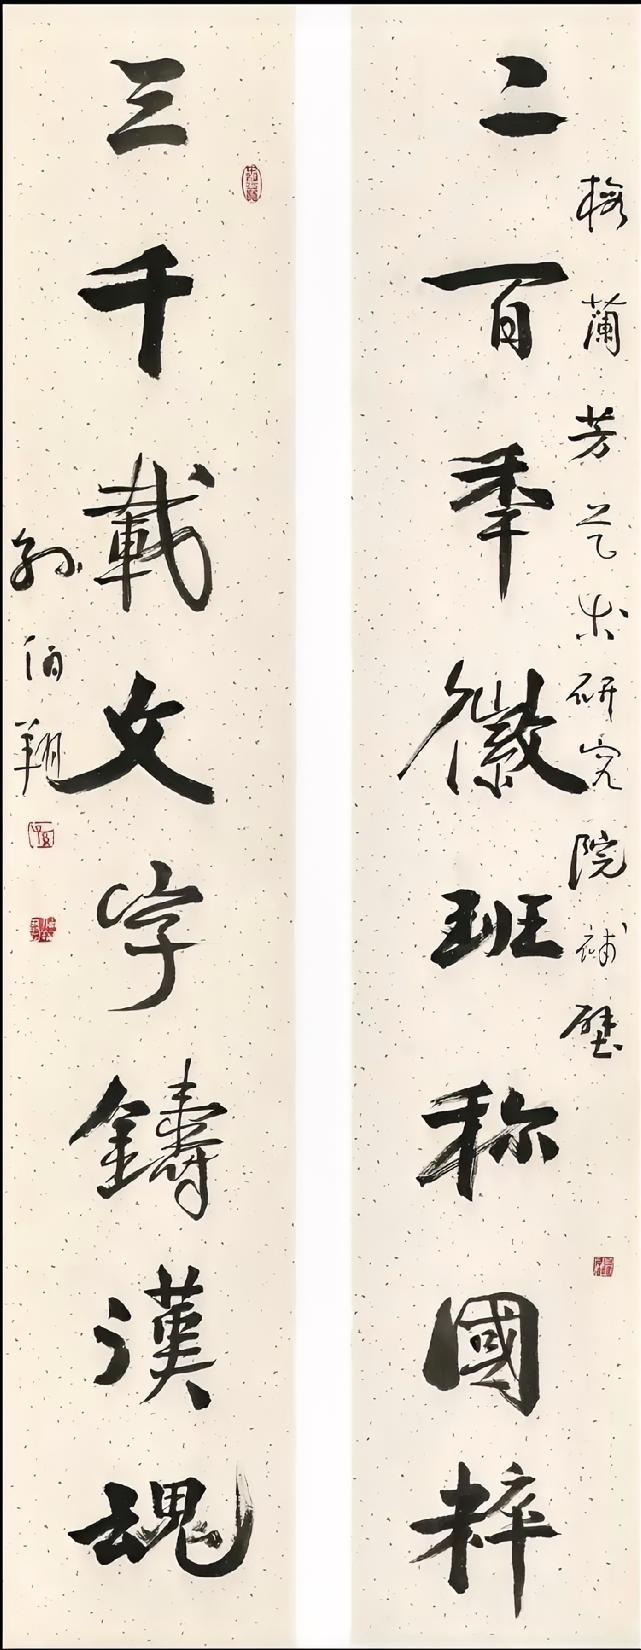 梅蘭芳艺术研究院補壁
二百秊徽班称國粹
三千載文字鑄漢魂
孙伯翔